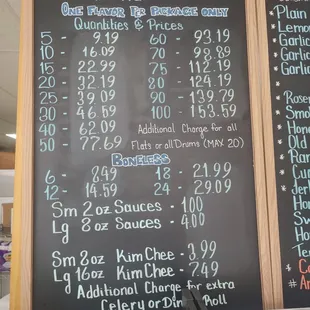 One Flavor Per Package Only
Quantities & Prices
5 - 9.19 60 - 93.19
10 - 16.09 70 -
15 - 22.99 75 - 112.19
20 - 32.19 80 - 124.19
25 - 39.09 90 - 139.79
30 - 46.59 100 - 153.59
40 - 62.09 Additional Charge for all
50 - 77.69 Flats or all Drums (MAX 20)
Boneless
6 - 8.49 18 - 21.99
12 - 14.59 24 - 29.09
Sm 2oz Sauces - 1.00
Lg 8oz Sauces - 4.00
Sm 8oz Kim Chee - 3.99
Lg 16oz Kim Chee - 7.49
Additional Charge for extra
Celery or Roll
Plain
Lemon
Garlic
Garlic
Garlic
Smok
Hone
Old
Ra
Cu
Jer
Hon
S
Ho
Te
* C
* A